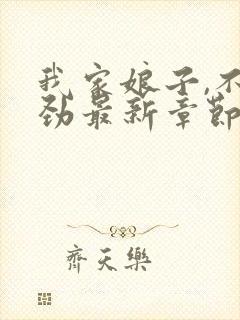 我家娘子,不
劲最新章節
齊天樂